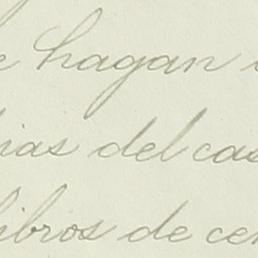 e hagan
ias del cas
libros de cer